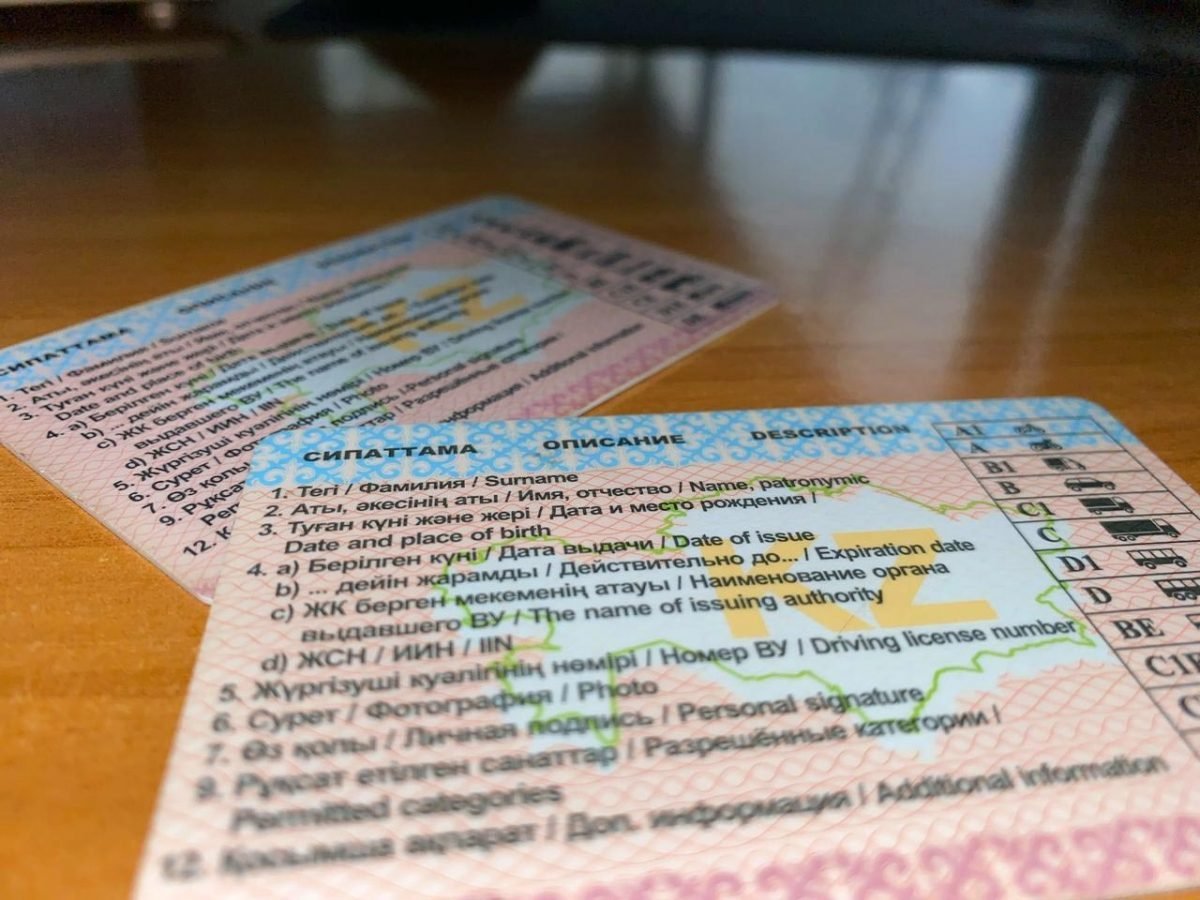 СИПАТТАМА ОПИСАНИЕ DESCRIPTION
1. Тегі / Фамилия / Surname
2. Аты, әкесінің аты / Имя, отчество / Name, patronymic
3. Туған күні және жері / Дата и место рождения /
Date and place of birth
4. a) Берілген күні / Дата выдачи / Date of issue
b) ... дейін жарамды / Действительно до... / Expiration date
c) ЖК берген мекеменің атауы / Наименование органа
выдавшего ВУ / The name of issuing authority
d) ЖСН / ИИН / IIN
5. Жүргізуші куәлігінің нөмірі / Номер ВУ / Driving license number
6. Сурет / Фотография / Photo
7. Өз қолы / Личная подпись / Personal signature
9. Рұқсат етілген санаттар / Разрешённые категории /
Permitted categories
12. Қосымша ақпарат / Доп. информация / Additional information
KZ
A1
A
B1
B
C1
C
D1
D
BE
СИПАТТАМА ОПИСАНИЕ
1. Тегі / Фамилия / Surname
2. Аты,
3. Туған күні
Date and place of birth
4. a) Берілген күні
b) ... дейін жарамды
c) ЖК берген мекеменің атауы
выдавшего ВУ / The name of
d) ЖСН / ИИН / IIN
5. Жүргізуші куәлігінің нөмірі / Номер ВУ / Driving
6. Сурет / Photo
7. Өз қолы подпись / Personal
9. Разрешённые
12. информация / Additional information
KZ